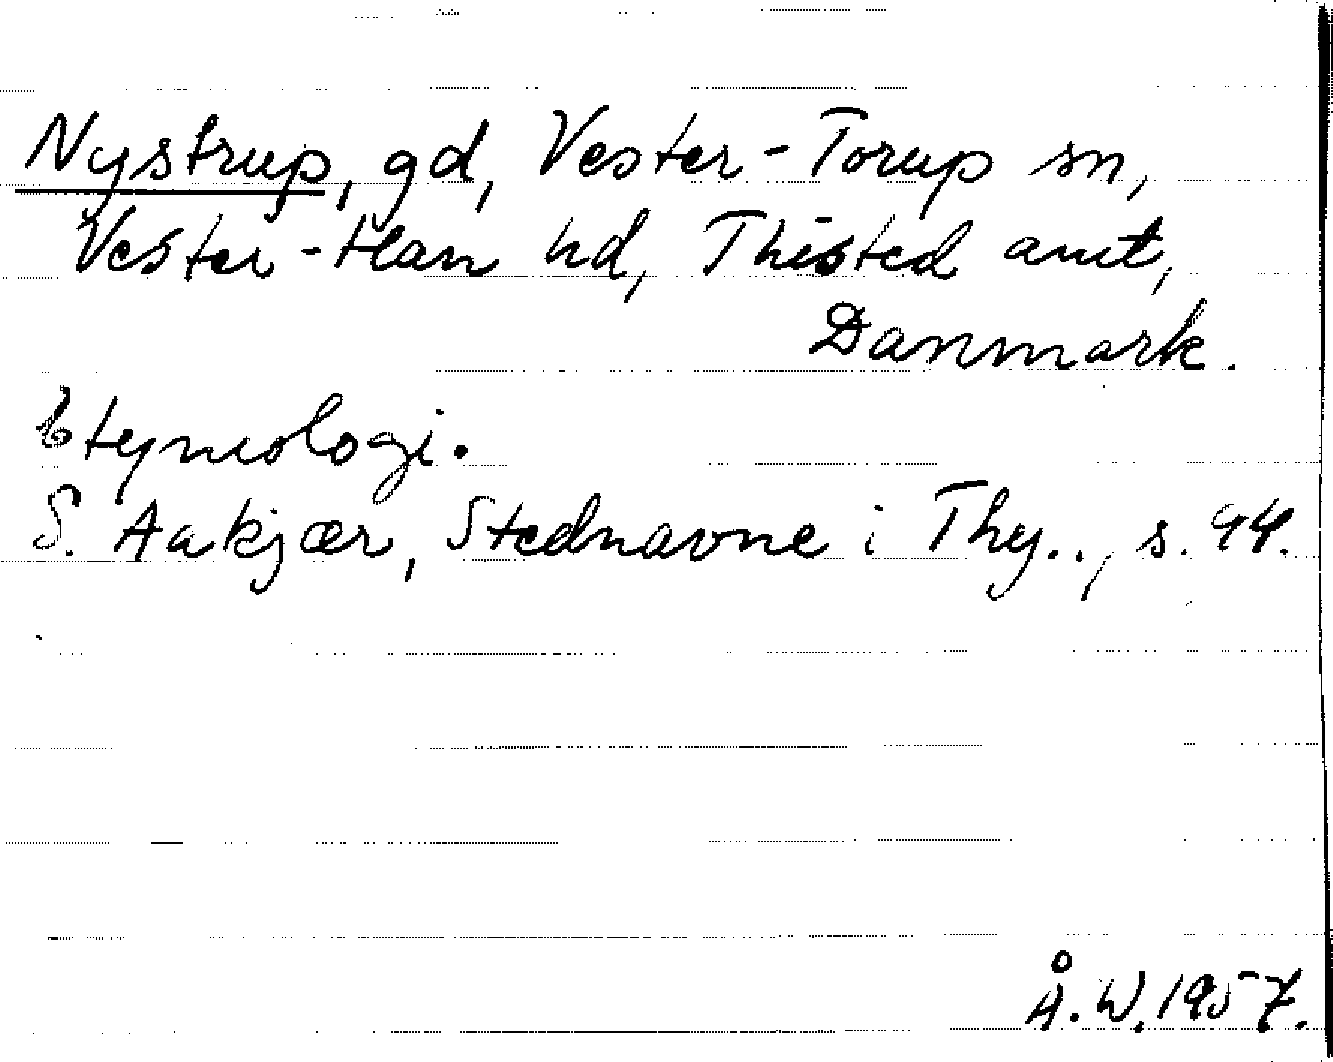 Nystrup, gd, Vester-Torup sn,
Vester-Han hd, Thisted amt,
Danmark.
Etymologi.
S. Aakjær, Stednavne i Thy.., s. 94.
Å.W. 1957.